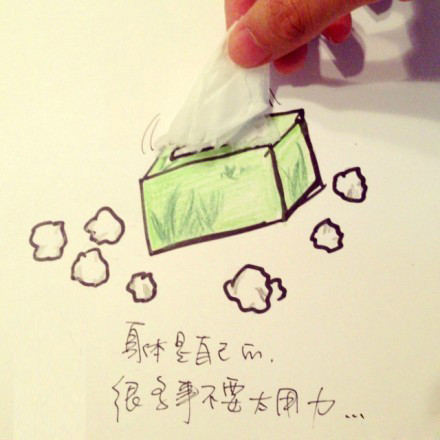 身体是自己的.
很多事不要太用力...